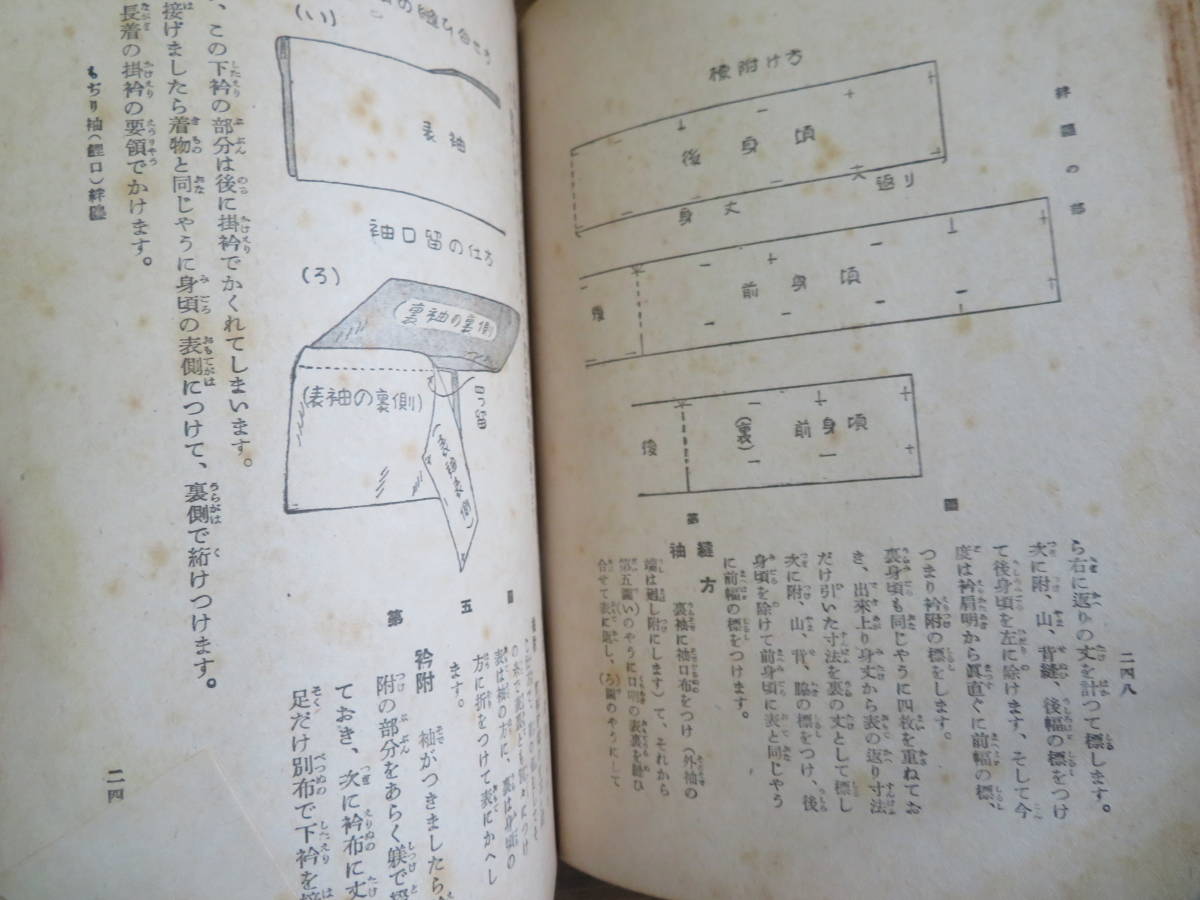 絆纏の部
二四八
標附け方
後身頃
大返り
身丈
前身頃
後
前身頃
(裏)
後
第
圖
ら右に返りの丈を計つて標します。
次に附、山、背縫、後幅の標をつけ
て後身頃を左に除けます、そして今
度は衿肩明から眞直ぐに前幅の標、
つまり衿附の標をします。
裏身頃も同じやうに四枚を重ねてお
き、出來上り身丈から表の返り寸法
だけ引いた寸法を裏の丈として標し
次に附、山、背、脇の標をつけ、後
身頃を除けて前身頃に表と同じやう
に前幅の標をつけます。
縫方
袖 裏袖に袖口布をつけ(外袖の
端は廻し附にします)て、それから
第五圖いのやうに口明の表裏を縫ひ
合せて表に返し、ろ圖のやうにして
の縫ひ合せ方
(い)
表袖
袖口留の仕方
(ろ)
裏袖の裏側
(表袖の裏側)
口留
(表袖表側)
第五圖
表は袖の方に、裏は身頃の
方に折をつけて表にかへし
ます。
衿附 袖がつきましたら
附の部分をあらく躾で
ておき、次に衿布に丈
足だけ別布で下衿を
、この下衿の部分は後に掛衿でかくれてしまいます。
接げましたら着物と同じやうに身頃の表側につけて、裏側で絎けつけます。
長着の掛衿の要領でかけます。
もぢり袖(鯉口)絆纏
二四